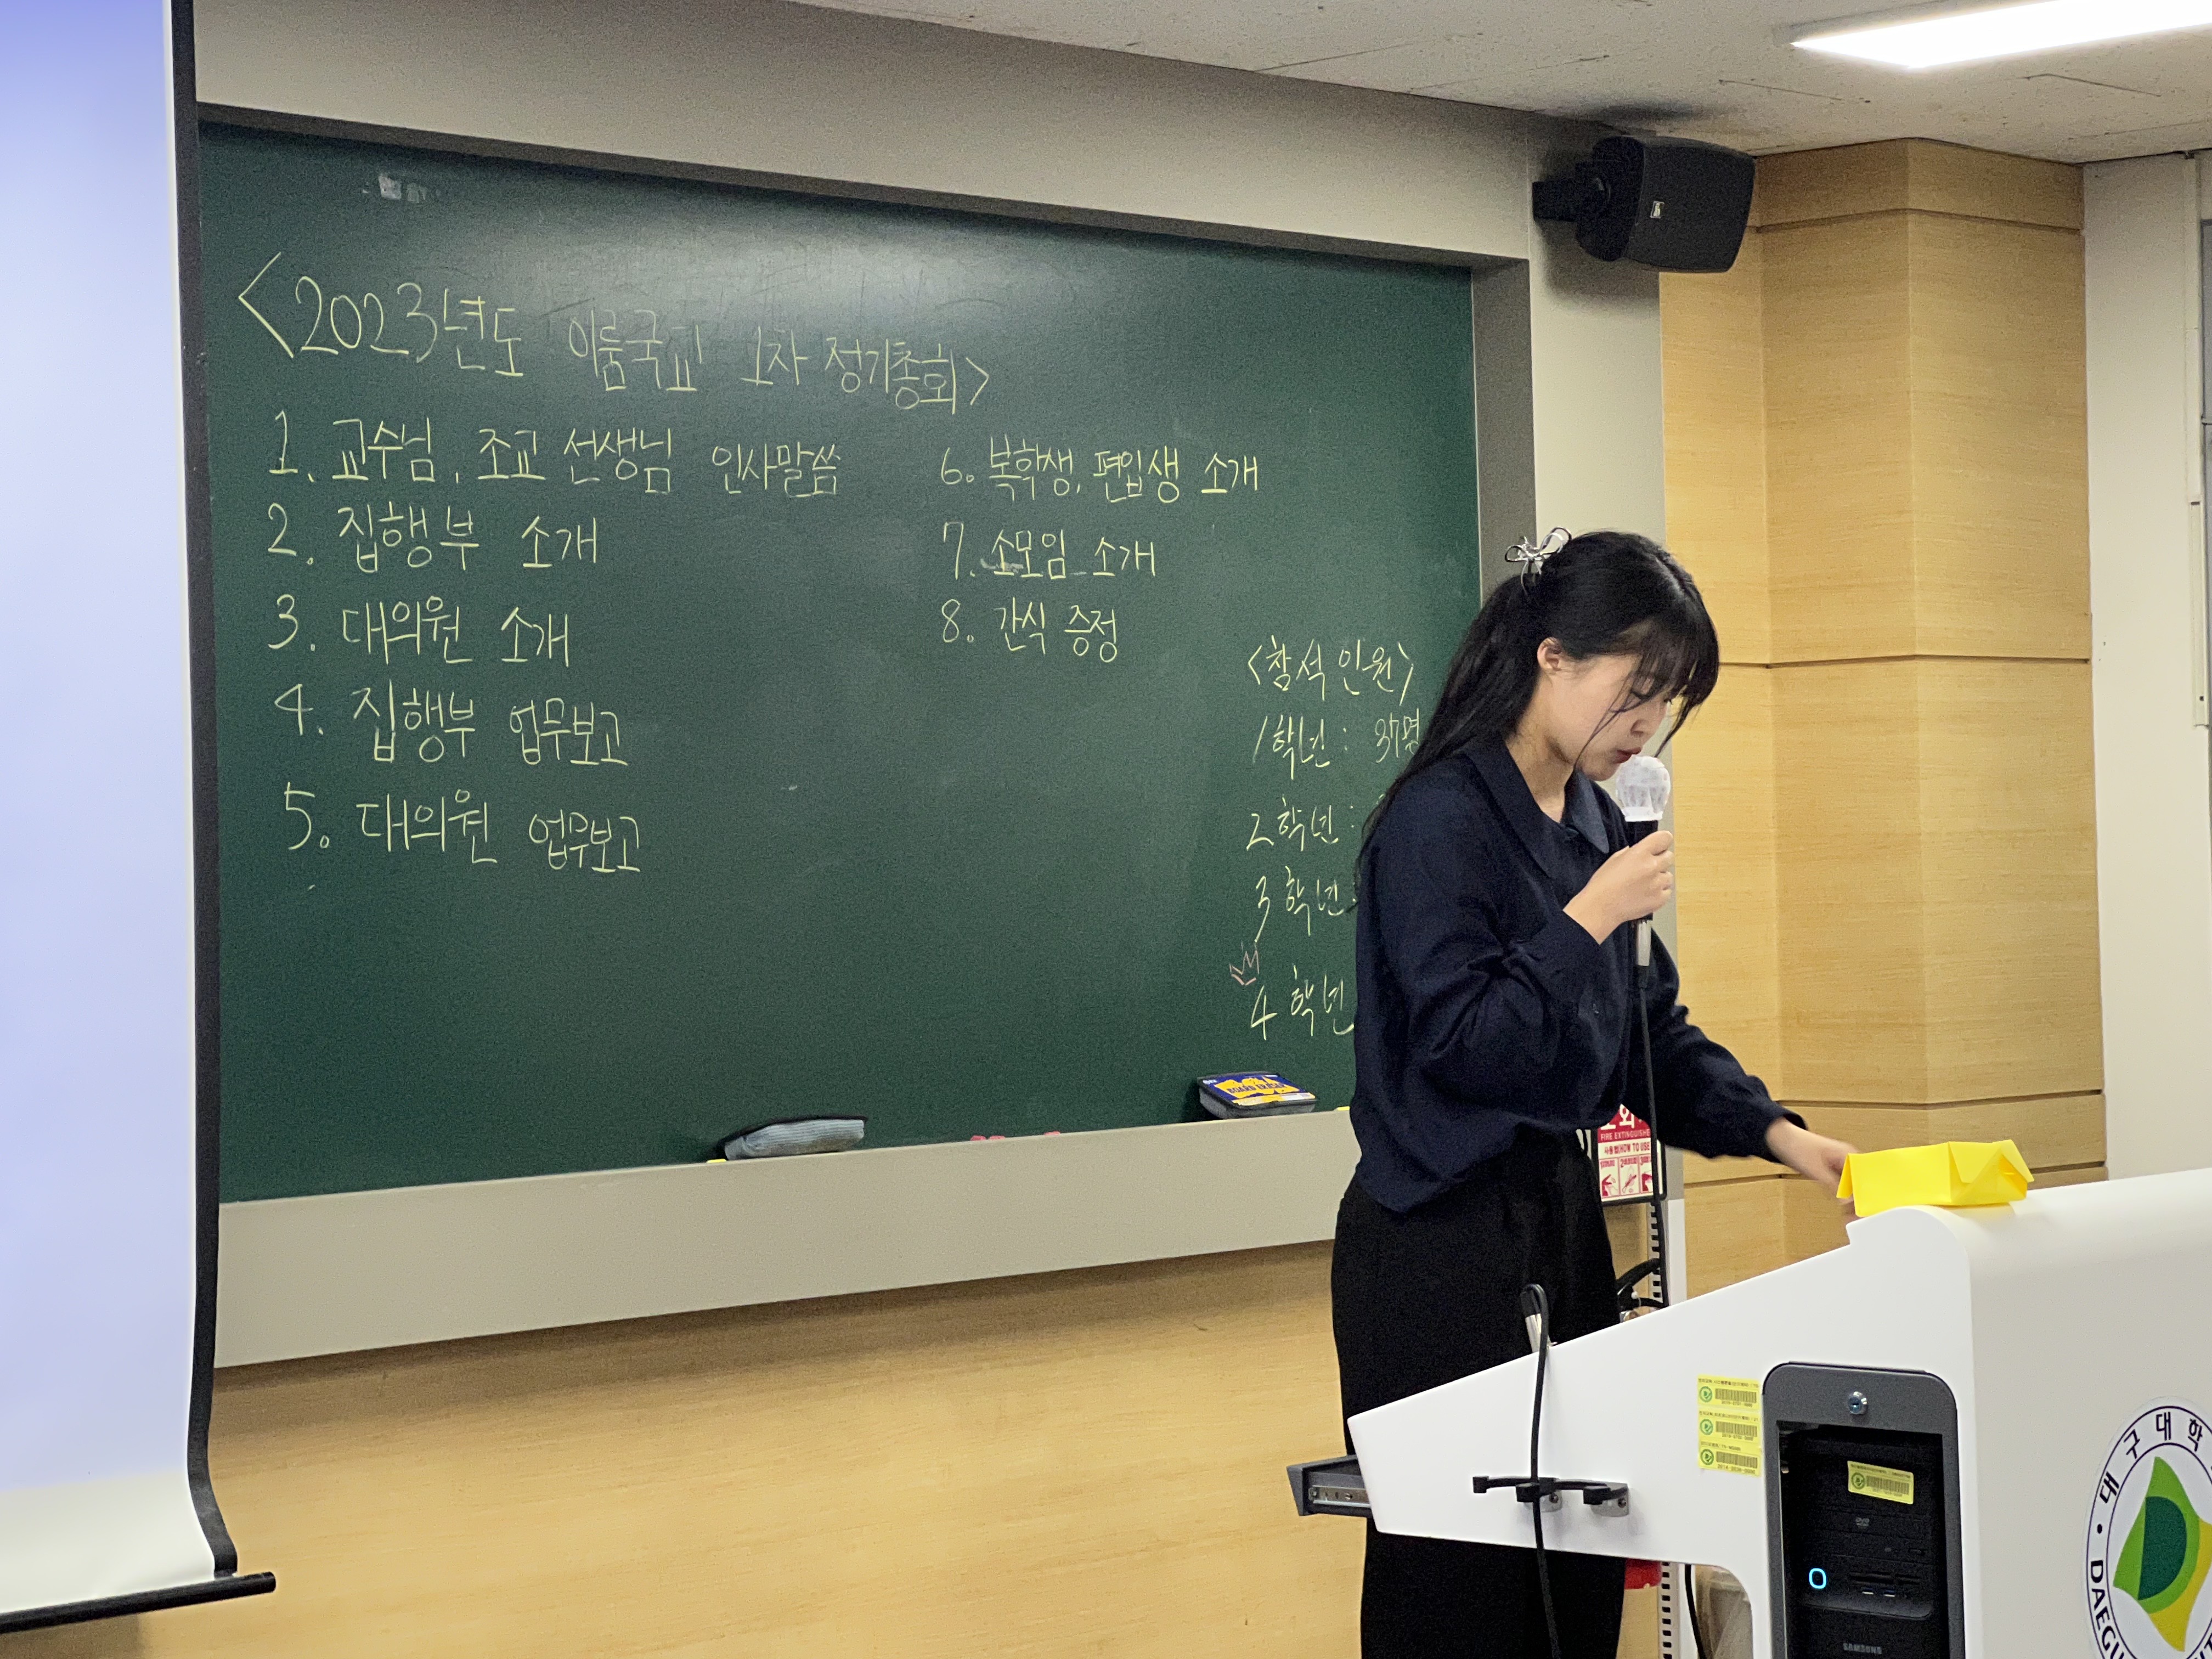 <2023년도 이룸국교 1차 정기총회>
1. 교수님, 조교 선생님 인사말씀
2. 집행부 소개
3. 대의원 소개
4. 집행부 업무보고
5. 대의원 업무보고
6. 복학생, 편입생 소개
7. 소모임 소개
8. 간식 증정
<참석 인원>
1학년 : 37명
2학년 :
3학년 :
4학년
BOARD ERASER
FIRE EXTINGUISHE
사용법(HOW TO USE
SAMSUNG
대구대학
DAEGU